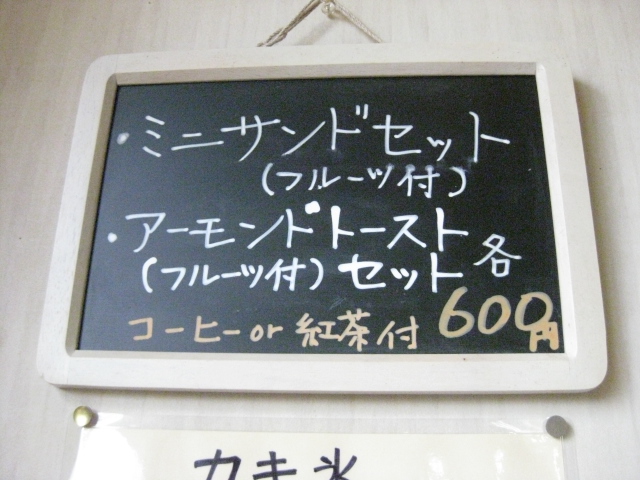 ・ミニサンドセット
(フルーツ付)
・アーモンドトースト
(フルーツ付)セット 各
コーヒーor紅茶付 600円
カキ氷